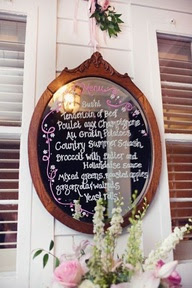 Menu
Sushi
Tenderloin of Beef
Poulet aux Champignons
Au Gratin Potatoes
Country Summer Squash
Broccoli with Butter and
Hollandaise sauce
Mixed greens, roasted apples
gorgonzola/walnuts
Yeast rolls